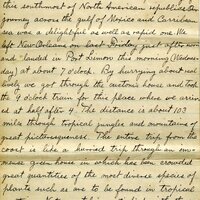 this southmost of North American republics. Our
journey across the gulf of Mexico and Carribean
sea was a delightful as well as rapid one. We
left New Orleans on last Friday just after noon
and landed in Port Limon this morning (Wednes
day) at about 7 o'clock. By hurrying about real
lively we got through the custom's house and took
the 9 o'clock train for this place where we arriv
ed at half after 4. The distance is about 103
miles through tropical jungles and mountains of
great picturesqueness. The entire trip from the
coast is like a hurried trip through an im-
mense green house in which has been crowded
great quantities of the most diverse species of
plants such as are to be found in tropical